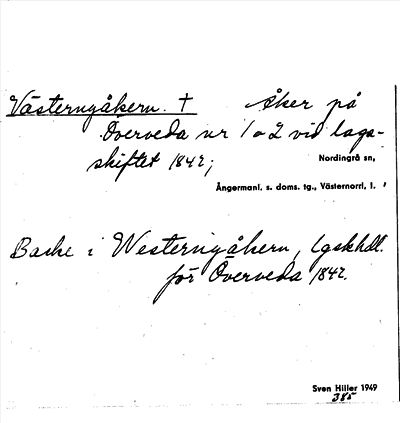 Västernyåkern. † Åker på
Överveda nr 1 o 2 vid laga-
skiftet 1842;
Nordingrå sn,
Ångermanl. s. doms. tg., Västernorrl. l.
Backe i Westernyåkern, Lgskhdl.
för Överveda 1842.
Sven Hiller 1949
385